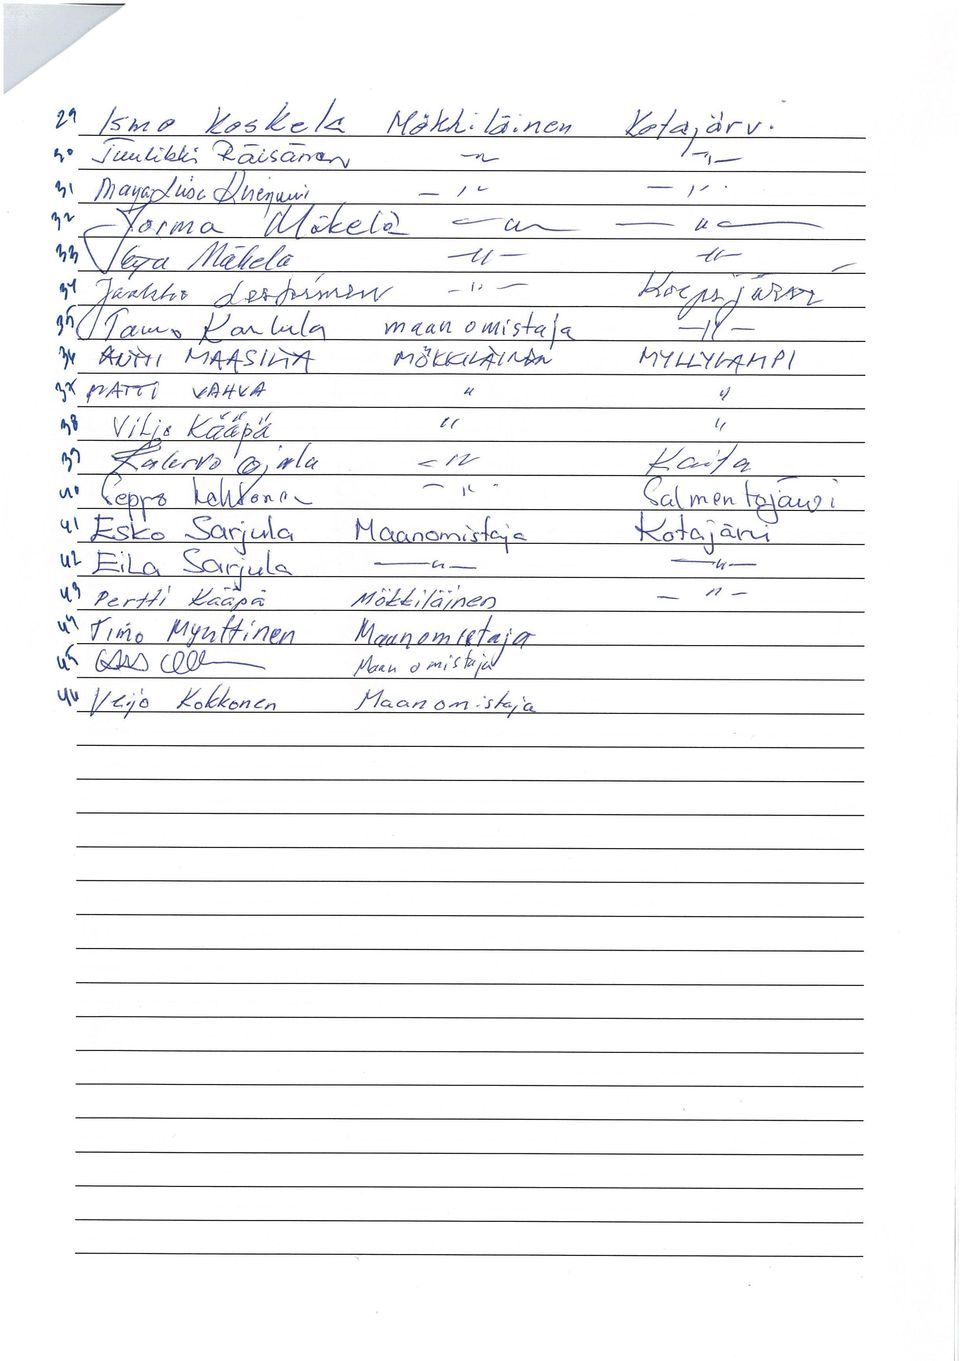 29 Ismo Koskela Mökkiläinen Kotajärv.
30 Tuulikki Räisänen -"- -"-
31 -"- -"-
32 Jorma Mäkelä -"- -"-
33 Mäkelä -"- -"-
34 Jaakko -"-
35 Tauno Karhula maanomistaja -"-
36 ANTTI MAASILTA MÖKKILÄINEN MYLLYLAMPI
37 MATTI VAHVA " "
38 Viljo Kääpä " "
39 Kalervo Ojala -"- Kaita
40 Seppo Lehtonen -"- Salmentajärvi
41 Esko Sarjula Maanomistaja Kotajärvi
42 Eila Sarjula -"- -"-
43 Pertti Kääpä Mökkiläinen -"-
44 Timo Mynttinen Maanomistaja
45 Maanomistaja
46 Veijo Kokkonen Maanomistaja